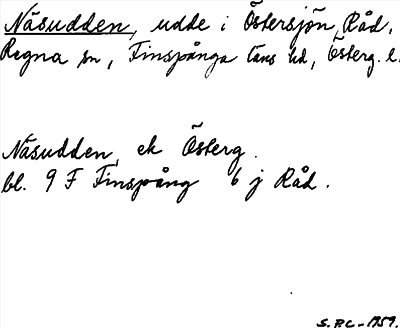 Näsudden, udde i Östersjön, Råd,
Regna sn, Finspånga läns hd, Österg. l.
Näsudden, ek Österg.
bl. 9 F Finspång 6 j Råd.
S.P.C-1959.